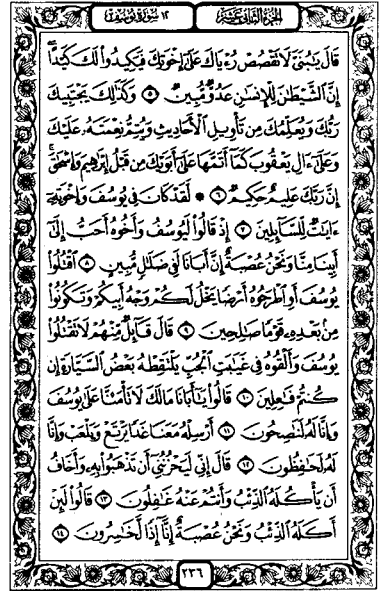 الجزء الثاني عشر ١٢ سورة يوسف
قَالَ يَٰبُنَىَّ لَا تَقْصُصْ رُءْيَاكَ عَلَىٰٓ إِخْوَتِكَ فَيَكِيدُوا۟ لَكَ كَيْدًا ۖ
إِنَّ ٱلشَّيْطَٰنَ لِلْإِنسَٰنِ عَدُوٌّ مُّبِينٌ ٥ وَكَذَٰلِكَ يَجْتَبِيكَ
رَبُّكَ وَيُعَلِّمُكَ مِن تَأْوِيلِ ٱلْأَحَادِيثِ وَيُتِمُّ نِعْمَتَهُۥ عَلَيْكَ
وَعَلَىٰٓ ءَالِ يَعْقُوبَ كَمَآ أَتَمَّهَا عَلَىٰٓ أَبَوَيْكَ مِن قَبْلُ إِبْرَٰهِيمَ وَإِسْحَٰقَ ۚ
إِنَّ رَبَّكَ عَلِيمٌ حَكِيمٌ ٦ * لَّقَدْ كَانَ فِى يُوسُفَ وَإِخْوَتِهِۦٓ
ءَايَٰتٌ لِّلسَّآئِلِينَ ٧ إِذْ قَالُوا۟ لَيُوسُفُ وَأَخُوهُ أَحَبُّ إِلَىٰٓ
أَبِينَا مِنَّا وَنَحْنُ عُصْبَةٌ إِنَّ أَبَانَا لَفِى ضَلَٰلٍ مُّبِينٍ ٨ ٱقْتُلُوا۟
يُوسُفَ أَوِ ٱطْرَحُوهُ أَرْضًا يَخْلُ لَكُمْ وَجْهُ أَبِيكُمْ وَتَكُونُوا۟
مِنۢ بَعْدِهِۦ قَوْمًا صَٰلِحِينَ ٩ قَالَ قَآئِلٌ مِّنْهُمْ لَا تَقْتُلُوا۟
يُوسُفَ وَأَلْقُوهُ فِى غَيَٰبَتِ ٱلْجُبِّ يَلْتَقِطْهُ بَعْضُ ٱلسَّيَّارَةِ إِن
كُنتُمْ فَٰعِلِينَ ١٠ قَالُوا۟ يَٰٓأَبَانَا مَا لَكَ لَا تَأْمَ۫نَّا عَلَىٰ يُوسُفَ
وَإِنَّا لَهُۥ لَنَٰصِحُونَ ١١ أَرْسِلْهُ مَعَنَا غَدًا يَرْتَعْ وَيَلْعَبْ وَإِنَّا
لَهُۥ لَحَٰفِظُونَ ١٢ قَالَ إِنِّى لَيَحْزُنُنِىٓ أَن تَذْهَبُوا۟ بِهِۦ وَأَخَافُ
أَن يَأْكُلَهُ ٱلذِّئْبُ وَأَنتُمْ عَنْهُ غَٰفِلُونَ ١٣ قَالُوا۟ لَئِنْ
أَكَلَهُ ٱلذِّئْبُ وَنَحْنُ عُصْبَةٌ إِنَّآ إِذًا لَّخَٰسِرُونَ ١٤
٢٣٦